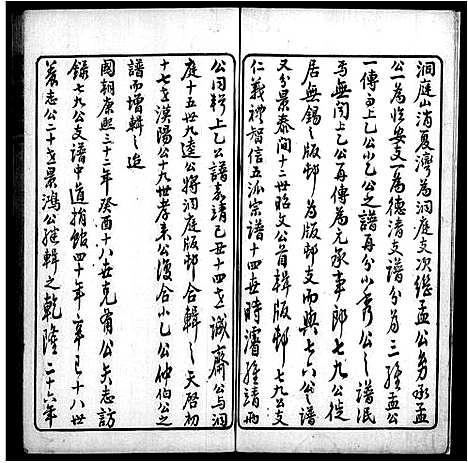 洞庭山消夏灣為洞庭支次繼孟公另承孟
公一為臨安支一為德清支譜分為三經孟公
一傳而上乙公小乙公之譜再分小秀公之譜泯
焉無聞上乙公再傳為元承事郎七九公從
居無錫之版邨為版邨支而與七六公之譜
又分景泰間十二世昭文公首輯版邨七九公支
仁義禮智信五派宗譜十四世時濬維請兩
公同輯上乙公譜嘉靖己丑十四世誠齋公與洞
庭十五世九逵公將洞庭版邨合輯之天啓初
十七世漢陽公九世孝來公復合小乙公仲伯公之
譜而增輯之迨
國朝康熙三十二年癸酉十八世克甫公矢志訪
錄七九公支譜中道捐館四十年辛巳十八世
養志公二十世景鴻公繼輯之乾隆二十六年